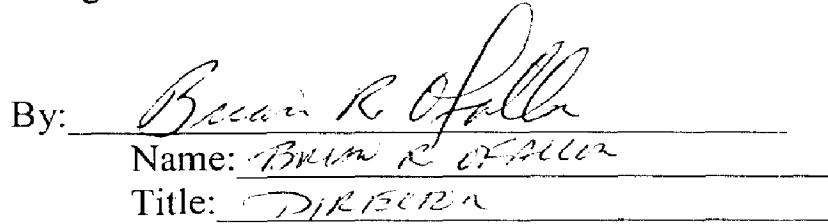 By: Brian R OFallon
Name: BRIAN R OFALLON
Title: DIRECTOR